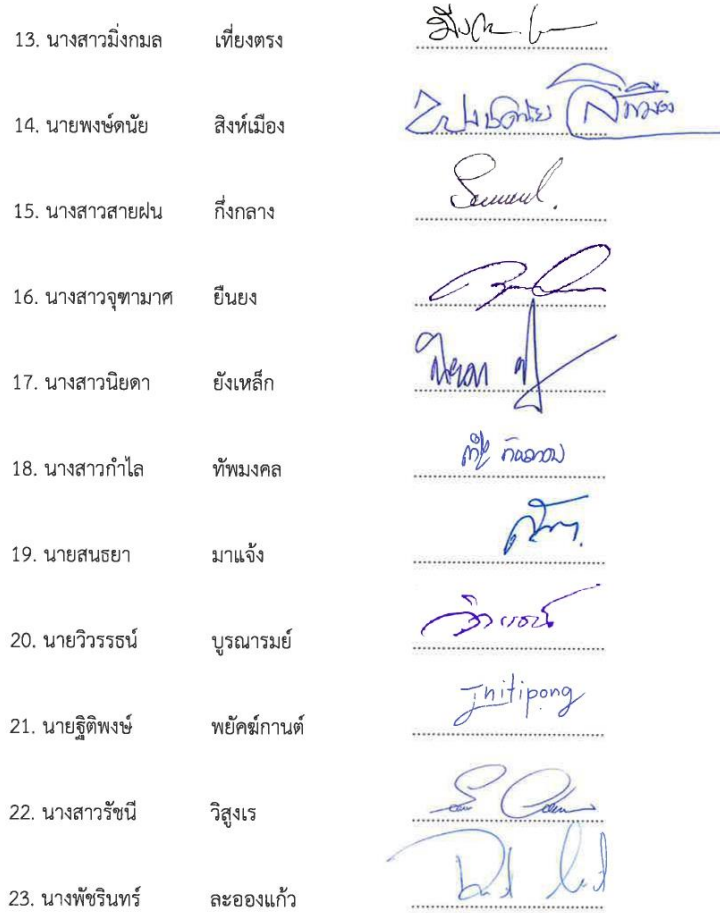 13. นางสาวมิ่งกมล เที่ยงตรง
14. นายพงษ์ดนัย สิงห์เมือง
15. นางสาวสายฝน กึ่งกลาง
16. นางสาวจุฑามาศ ยืนยง
17. นางสาวนิยดา ยังเหล็ก
18. นางสาวกำไล ทัพมงคล
19. นายสนธยา มาแจ้ง
20. นายวิวรรธน์ บูรณารมย์
21. นายฐิติพงษ์ พยัคฆ์กานต์ Thitipong
22. นางสาวรัชนี วิสูงเร
23. นางพัชรินทร์ ละอองแก้ว